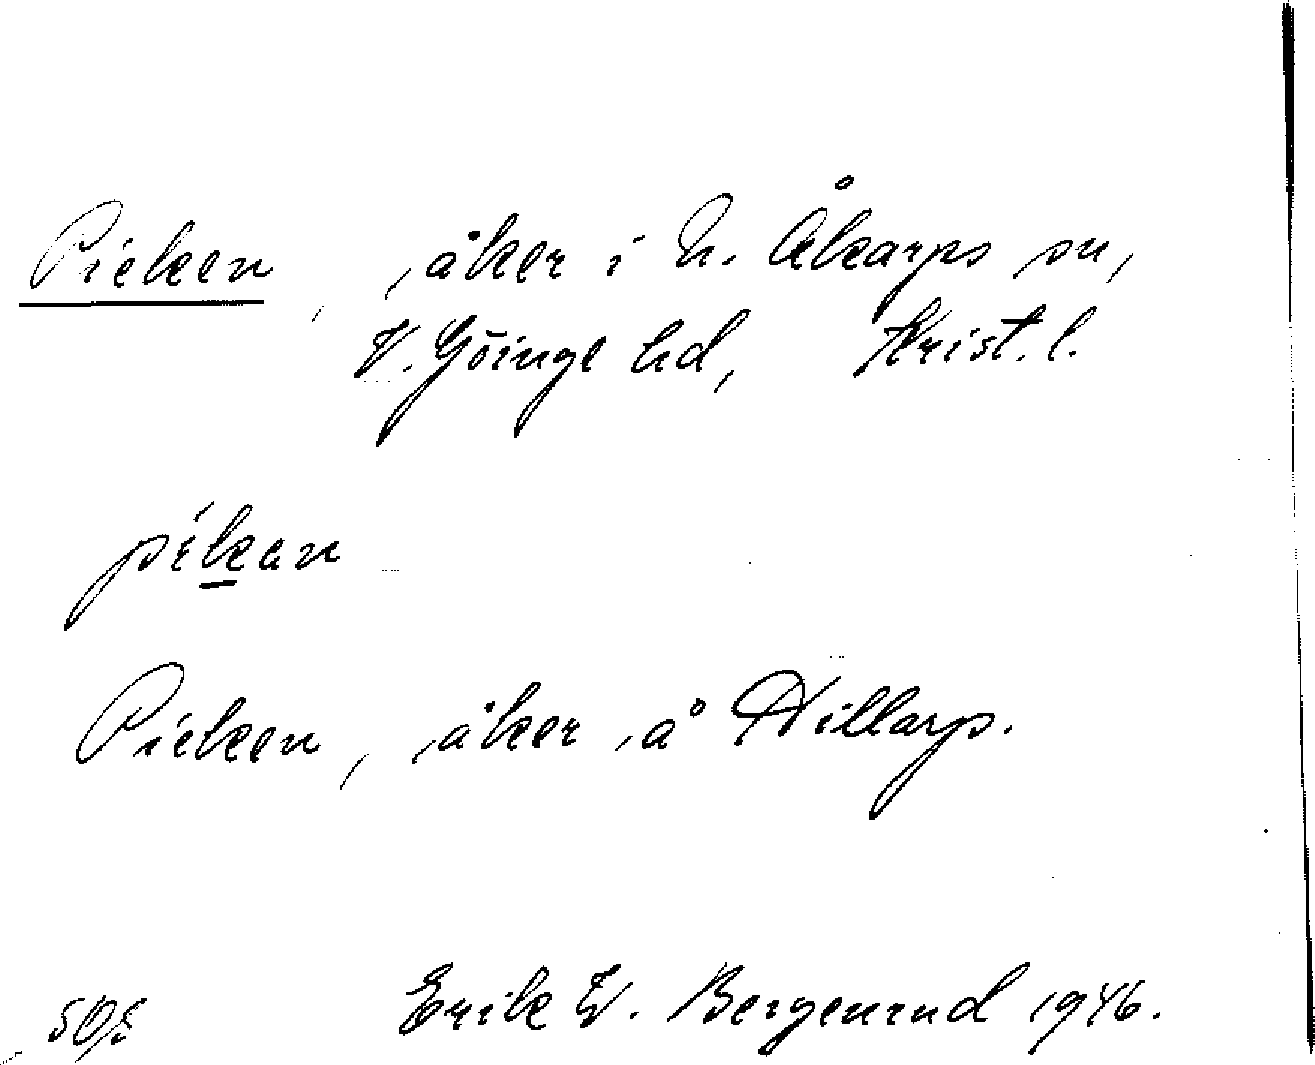 Picken, åker i N. Åkarps sn,
V. Göinge hd, Krist. l.
píkan
Picken, åker å Hillarp.
Erik W. Bergenrud 1946.